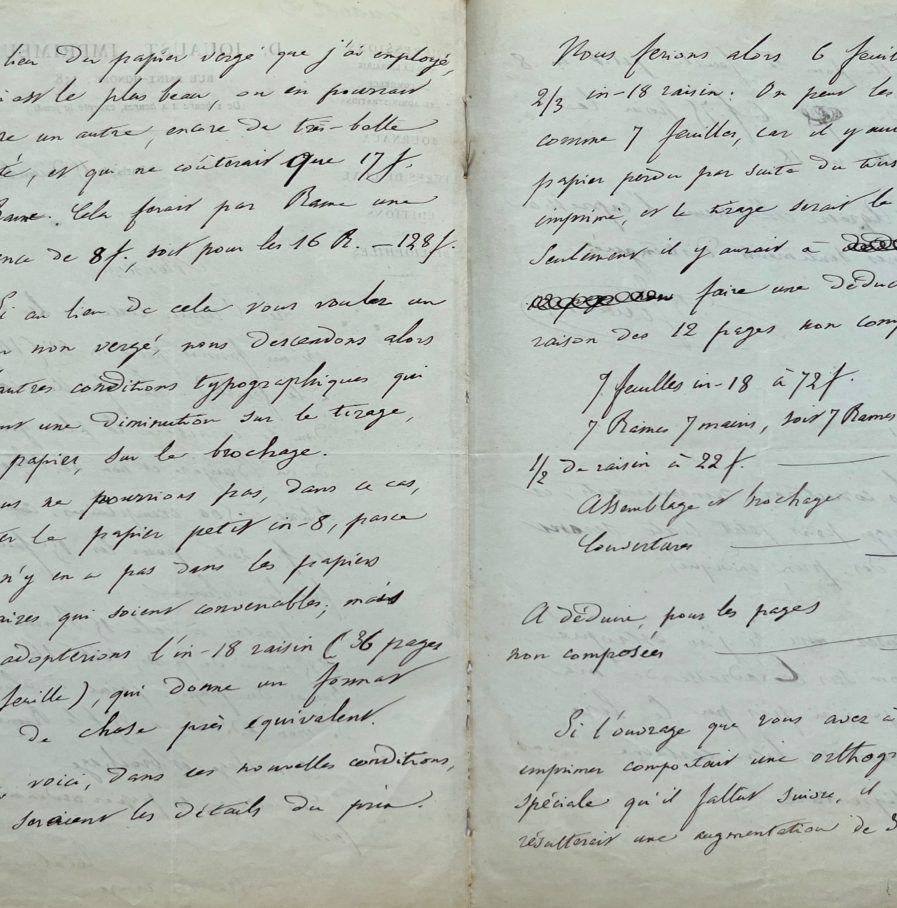 lieu du papier vergé que j'ai employé,
est le plus beau, on en pourrait
re un autre, encore de très-belle
té, et qui ne coûterait que 17 f.
Rame. Cela ferait par Rame une
ence de 8 f., soit pour les 16 R. — 128 f.
Si au lieu de cela vous voulez un
non vergé, nous descendons alors
autres conditions typographiques qui
nt une diminution sur le tirage,
papier, sur le brochage.
us ne pourrions pas, dans ce cas,
er le papier petit in-8, parce
n'y en a pas dans les papiers
qui soient convenables; mais
adopterions l'in-18 raisin (36 pages
feuille), qui donne un format
de chose près équivalent.
voici, dans ces nouvelles conditions,
seraient les détails du prix.
Nous ferions alors 6 feuil
2/3 in-18 raisin: On peut les
comme 7 feuilles, car il y au
papier perdu par suite du tiers
imprimé, et le tirage serait le
Seulement il y aurait à
faire une déduc
raison des 12 pages non comp
7 feuilles in-18 à 72 f.
7 Rames 7 mains, soit 7 Rames
1/2 de raisin à 22 f. —
Assemblage et brochage
Couvertures —
A déduire, pour les pages
non composées —
Si l'ouvrage que vous avez à
imprimer comportait une orthogr
spéciale qu'il fallut suivre, il
résulterait une augmentation de 3
D. JOUAUST, IMPRIMEU
RUE SAINT-HONORÉ
JOURNAUX